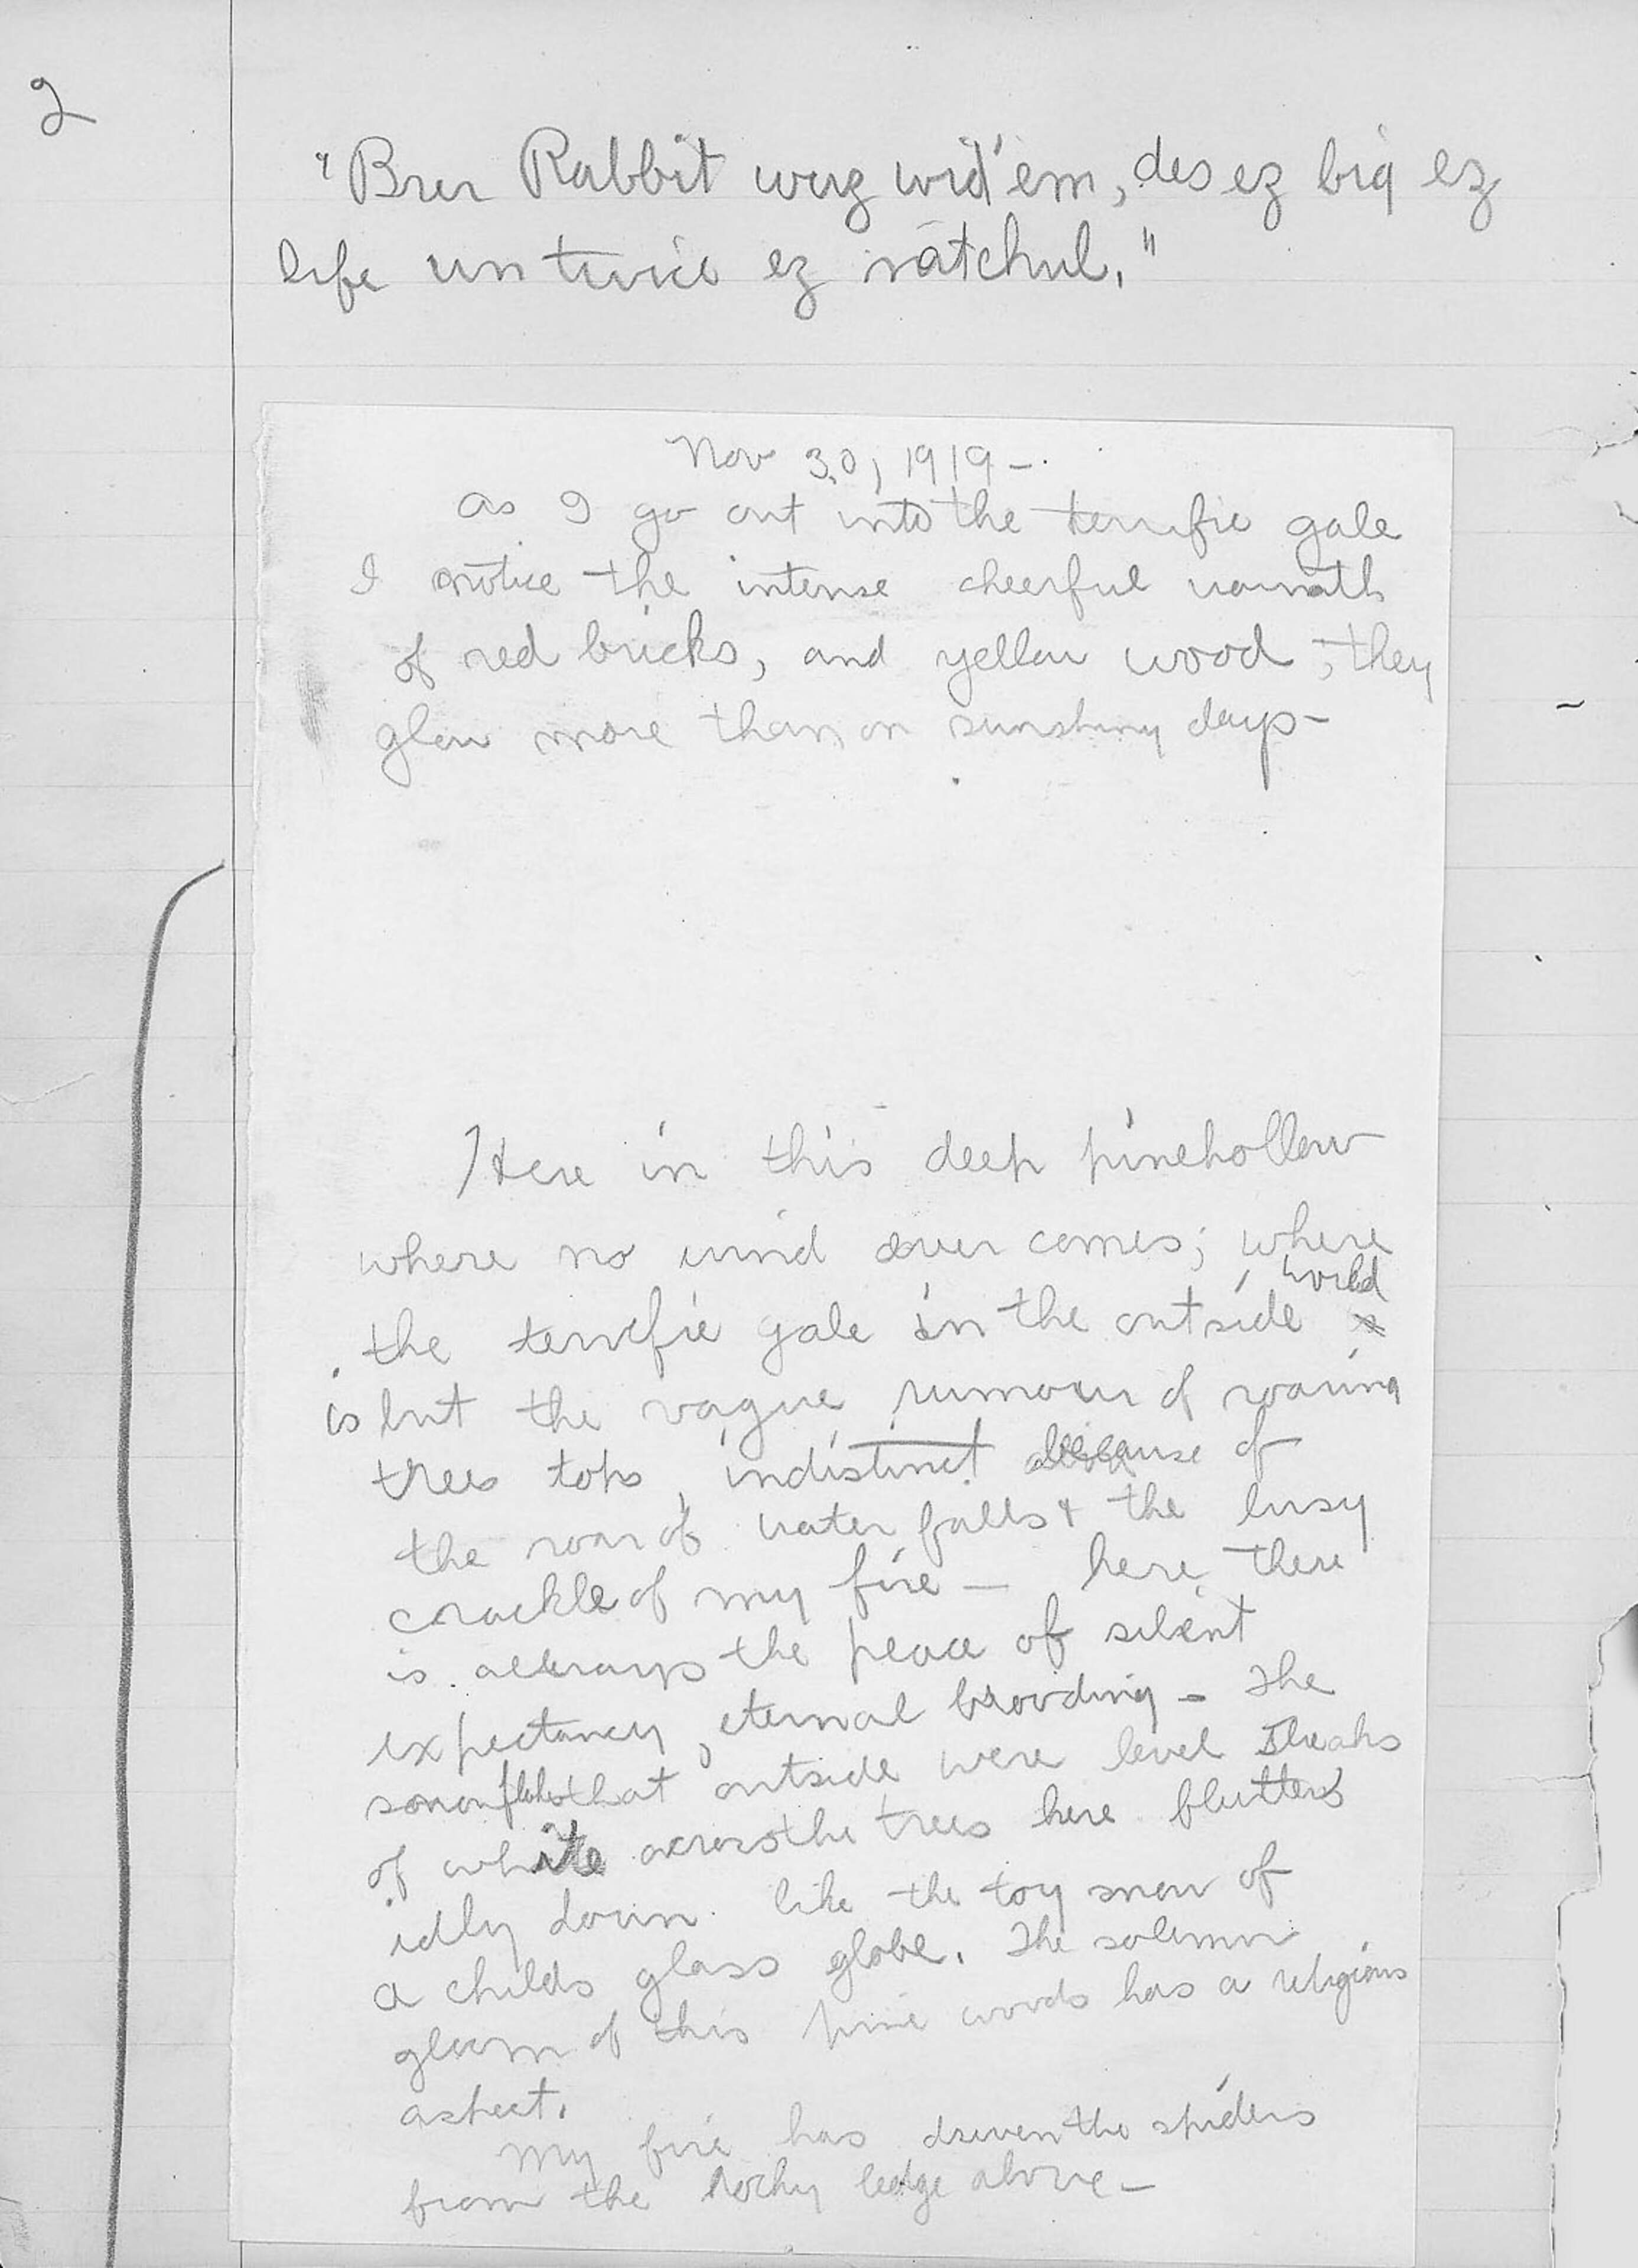 2
"Brer Rabbit wuz wid 'em, des ez big ez
life un twice ez natchul."
Nov 30, 1919 -.
As I go out into the terrific gale
I notice the intense cheerful warmth
of red bricks, and yellow wood, they
glow more than on sunshiny days -
Here in this deep pinehollow
where no wind ever comes; where
world
the terrific gale in the outside
is but the vague rumour of roaring
trees tops, indistinct because of
the roar of water falls & the busy
crackle of my fire — here there
is always the peace of silent
expectancy, eternal brooding - The
snowflakes that outside were level streaks
of white across the trees here flutters
idly down like the toy snow of
a childs glass globe. The solemn
gloom of this pine woods has a religious
aspect.
My fire has driven the spiders
from the Rocky ledge above -